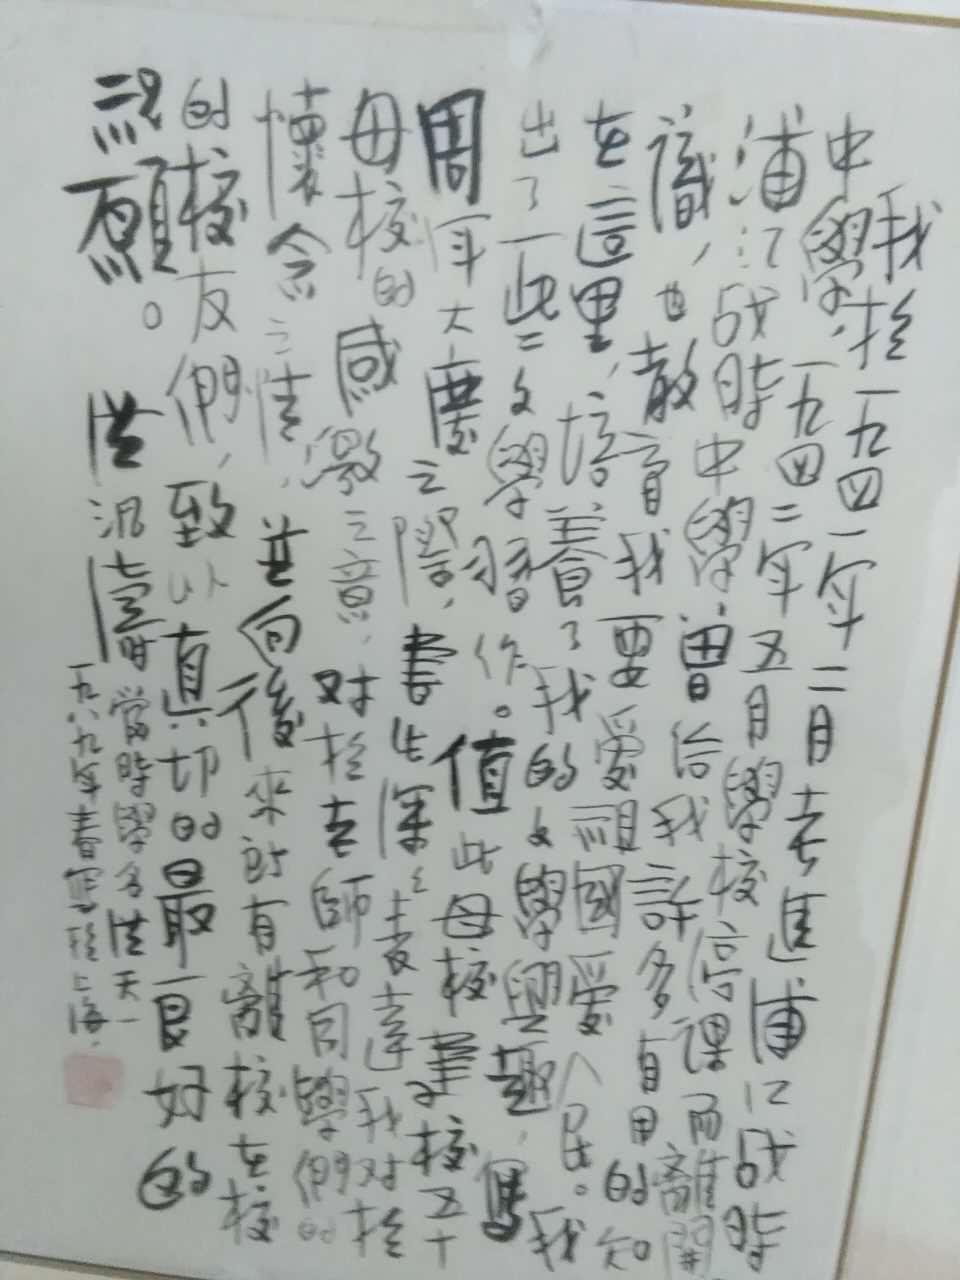 我於一九四一年二月考進浦江战時
中學，一九四二年五月學校停課而離開
浦江战時中學曾给我許多有用的知
識，也教育我要愛祖國愛人民。我
在這里，培養了我的文學興趣，寫
出了一些文學習作。值此母校建校五十
周年大慶之際，書此深深表達我对於
母校的感激之意，对於老師和同學們的
懷念之情，並向後來所有離校在校
的校友們，致以真切的最良好的
祝願。
洪汛濤 当時學名洪天一
一九八九年春寫於上海。